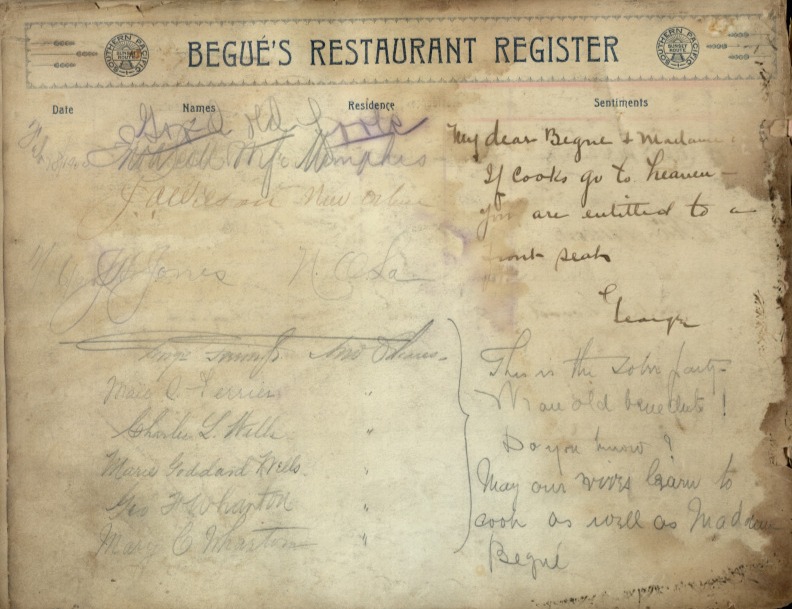 SOUTHERN PACIFIC
SUNSET ROUTE
BEGUÉ'S RESTAURANT REGISTER
SOUTHERN PACIFIC
SUNSET ROUTE
Date Names Residence Sentiments
Good old
Wife Memphis
New Orleans
Jones N. O. La
My dear Begue & Madame
If Cooks go to heaven —
you are entitled to a
front seat
George
New Orleans
"
Charles L. Wells "
Marie Goddard Wells "
Geo Wharton "
Mary C Wharton "
This is the sober party
old benedicts !
Do you know ?
May our wives learn to
cook as well as Madame
Begué